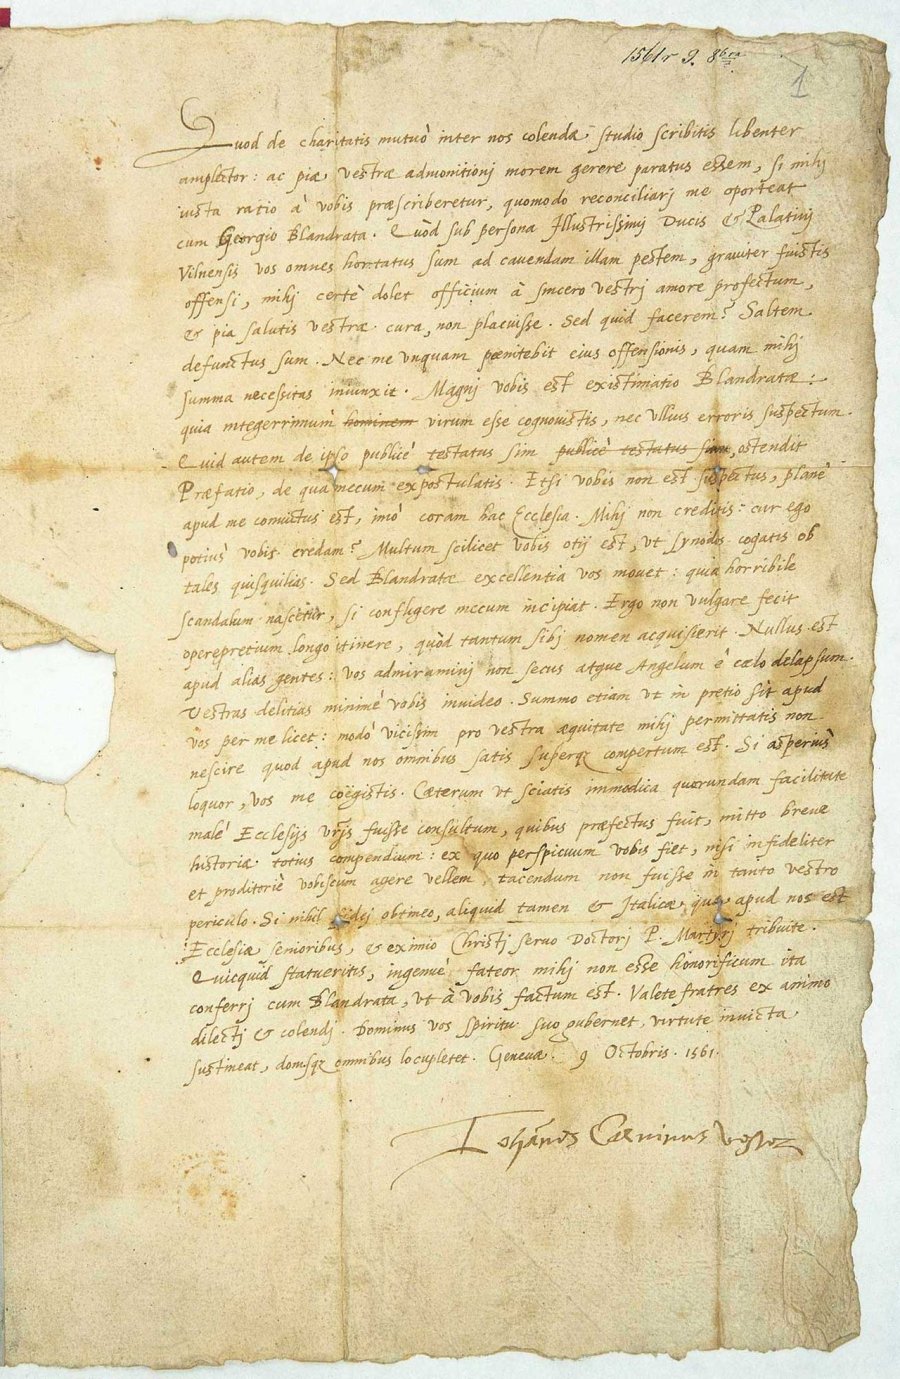 1561 r 9. 8bra
1
Quod de charitatis mutuò inter nos colendæ studio scribitis libenter
amplector: ac piæ vestræ admonitionj morem gerere paratus essem, si mihj
iusta ratio à vobis præscriberetur, quomodo reconciliarj me oporteat
cum Georgio Blandrata. Quòd sub persona Illustrissimi Ducis & Palatinj
Vilnensis vos omnes hortatus sum ad cauendam illam pestem, grauiter fuistis
offensi, mihj certè dolet officium à sincero vestrj amore profectum,
& pia salutis vestræ cura, non placuisse. Sed quid facerem? Saltem
defunctus sum. Nec me vnquam pœnitebit eius offensionis, quam mihj
summa necessitas iniunxit. Magnj vobis est existimatio Blandratæ:
quia integerrimum hominem virum esse cognouistis, nec vllius erroris suspectum.
Quid autem de ipso publicè testatus sim publicè testatus sim, ostendit
Præfatio, de qua mecum expostulatis. Etsi vobis non est suspectus, planè
apud me conuictus est, imò coram hac Ecclesia. Mihj non creditis: cur ego
potius vobis credam? Multum scilicet vobis otij est, vt synodos cogatis ob
tales quisquilias. Sed Blandratæ excellentia vos mouet: quia horribile
scandalum nascetur, si confligere mecum incipiat. Ergo non vulgare fecit
operepretium longo itinere, quòd tantum sibj nomen acquisierit. Nullus est
apud alias gentes: vos admiraminj non secus atque Angelum è cœlo delapsum.
Vestras delitias minimè vobis inuideo. Summo etiam vt in pretio sit apud
vos per me licet: modò vicissim pro vestra æquitate mihj permittatis non
nescire quod apud nos omnibus satis superq compertum est. Si asperius
loquor, vos me coëgistis. Cæterum vt sciatis immodica quorundam facilitate
malè Ecclesijs vrjs fuisse consultum, quibus præfectus fuit, mitto breue
historiæ totius compendium: ex quo perspicuum vobis fiet, nisi infideliter
et proditoriè vobiscum agere vellem, tacendum non fuisse in tanto vestro
periculo. Si nihil fidej obtineo, aliquid tamen & Italicæ, quæ apud nos est
Ecclesiæ senioribus, & eximio Christj seruo Doctorj P. Martyrj tribuite.
Quicquid statueritis, ingenuè fateor mihj non esse honorificum ita
conferrj cum Blandrata, vt à vobis factum est. Valete fratres ex animo
dilectj & colendj. Dominus vos spiritu suo gubernet, virtute inuicta
sustineat, donisq omnibus locupletet. Geneuæ. 9 Octobris. 1561.
Iohānes Caluinus vester